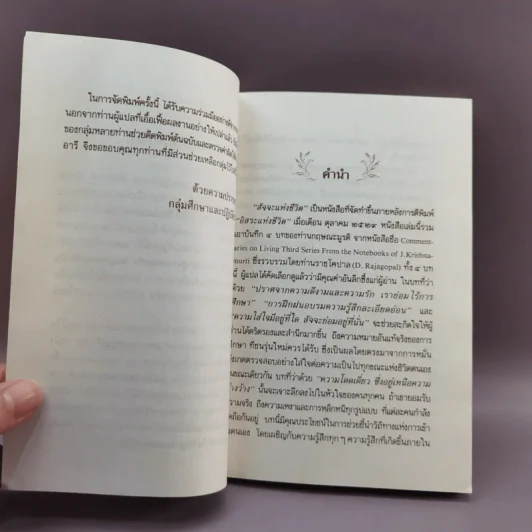 ในการจัดพิมพ์ครั้งนี้ ได้รับความร่วมมืออย่างดี
นอกจากท่านผู้แปลที่เอื้อเฟื้อผลงานอย่างให้เปล่าแล้ว
ของกลุ่มหลายท่านช่วยดีดพิมพ์ต้นฉบับและตรวจ
อารี จึงขอขอบคุณทุกท่านที่มีส่วนช่วยเหลือ
ด้วยความ
กลุ่มศึกษาและปฏิบัติ
คำนำ
“สัจจะแห่งชีวิต” เป็นหนังสือที่จัดทำขึ้นภายหลังการตีพิมพ์
“อิสระแห่งชีวิต” เมื่อเดือน ตุลาคม ๒๕๒๙ หนังสือเล่มนี้รวม
เอาบันทึก ๔ บทของท่านกฤษณะมูรติ จากหนังสือชื่อ Comment-
aries on Living Third Series From the Notebooks of J.Krishna-
murti ซึ่งรวบรวมโดยท่านราชโคปาล (D. Rajagopal) ทั้ง ๔ บท
นี้ ผู้แปลได้คัดเลือกดูแล้วว่ามีคุณค่าอันลึกซึ้งแก่ผู้อ่าน ในบทที่ว่า
ด้วย “ปราศจากความดีงามและความรัก เราย่อมไร้การ
ศึกษา” “การฝึกฝนอบรมความรู้สึกละเอียดอ่อน” และ
“ความใส่ใจมีอยู่ที่ใด สัจจะย่อมอยู่ที่นั่น” จะช่วยสะกิดใจให้ผู้
อ่านได้ตริตรองและสำนึกมากขึ้น ถึงความหมายอันแท้จริงของการ
ศึกษา ที่ชนรุ่นใหม่ควรได้รับ ซึ่งเป็นผลโดยตรงมาจากการหมั่น
สังเกตตรวจสอบอย่างใส่ใจต่อความเป็นไปทุกขณะแห่งชีวิตตนเอง
ขณะเดียวกัน บทที่ว่าด้วย “ความโดดเดี่ยว ซึ่งอยู่เหนือความ
อ้างว้าง” นั้นจะเจาะลึกลงไปในหัวใจของคนทุกคน ถ้าเขายอมรับ
ความจริง ถึงความเหงาและการหลีกหนีทุกรูปแบบ ที่แต่ละคนกำลัง
ยึดถือกันอยู่ บทนี้มีคุณประโยชน์ในการช่วยชี้นำวิถีทางแห่งการเข้า
ตนเอง โดยเผชิญกับความรู้สึกทุก ๆ ความรู้สึกที่เกิดขึ้นภายใน